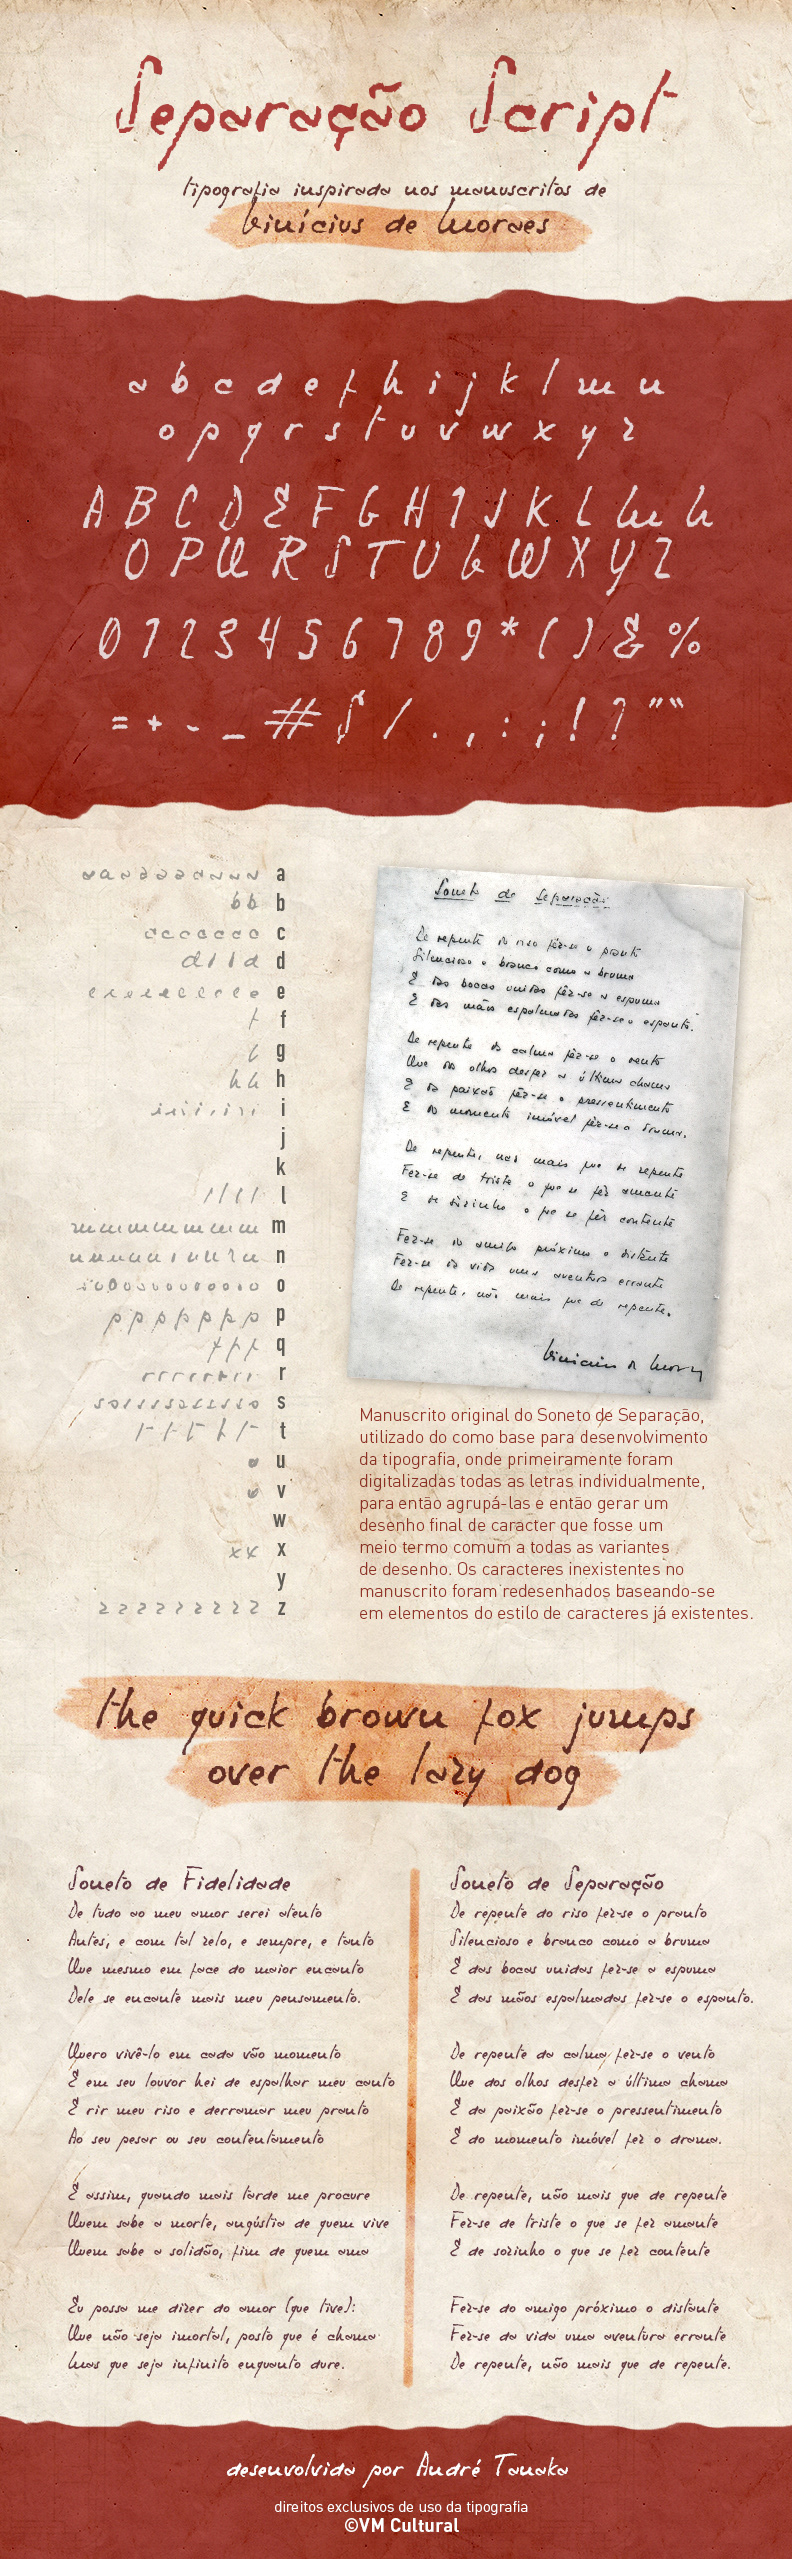 Separação Script
tipografia inspirada nos manuscritos de
Vinícius de Moraes
a b c d e f h i j k l m n
o p q r s t u v w x y z
A B C D E F G H I J K L M N
O P Q R S T U V W X Y Z
0 1 2 3 4 5 6 7 8 9 * ( ) & %
= + - _ # $ / . , : ; ! ? " "
a
b
c
d
e
f
g
h
i
j
k
l
m
n
o
p
q
r
s
t
u
v
w
x
y
z
Soneto de Separação
De repente do riso fêz-se o pranto
Silencioso e branco como a bruma
E das bocas unidas fêz-se a espuma
E das mãos espalmadas fêz-se o espanto.
De repente da calma fêz-se o vento
Que dos olhos desfez a última chama
E da paixão fêz-se o pressentimento
E do momento imóvel fêz-se o drama.
De repente, não mais que de repente
Fez-se de triste o que se fêz amante
E de sòzinho o que se fêz contente
Fez-se do amigo próximo o distante
Fez-se da vida uma aventura errante
De repente, não mais que de repente.
Vinicius de Moraes
Manuscrito original do Soneto de Separação,
utilizado do como base para desenvolvimento
da tipografia, onde primeiramente foram
digitalizadas todas as letras individualmente,
para então agrupá-las e então gerar um
desenho final de caracter que fosse um
meio termo comum a todas as variantes
de desenho. Os caracteres inexistentes no
manuscrito foram redesenhados baseando-se
em elementos do estilo de caracteres já existentes.
the quick brown fox jumps
over the lazy dog
Soneto de Fidelidade
De tudo ao meu amor serei atento
Antes, e com tal zelo, e sempre, e tanto
Que mesmo em face do maior encanto
Dele se encante mais meu pensamento.
Quero vivê-lo em cada vão momento
E em seu louvor hei de espalhar meu canto
E rir meu riso e derramar meu pranto
Ao seu pesar ou seu contentamento
E assim, quando mais tarde me procure
Quem sabe a morte, angústia de quem vive
Quem sabe a solidão, fim de quem ama
Eu possa me dizer do amor (que tive):
Que não seja imortal, posto que é chama
Mas que seja infinito enquanto dure.
Soneto de Separação
De repente do riso fez-se o pranto
Silencioso e branco como a bruma
E das bocas unidas fez-se a espuma
E das mãos espalmadas fez-se o espanto.
De repente da calma fez-se o vento
Que dos olhos desfez a última chama
E da paixão fez-se o pressentimento
E do momento imóvel fez o drama.
De repente, não mais que de repente
Fez-se de triste o que se fez amante
E de sozinho o que se fez contente
Fez-se do amigo próximo o distante
Fez-se da vida uma aventura errante
De repente, não mais que de repente.
desenvolvida por André Tanaka
direitos exclusivos de uso da tipografia
©VM Cultural